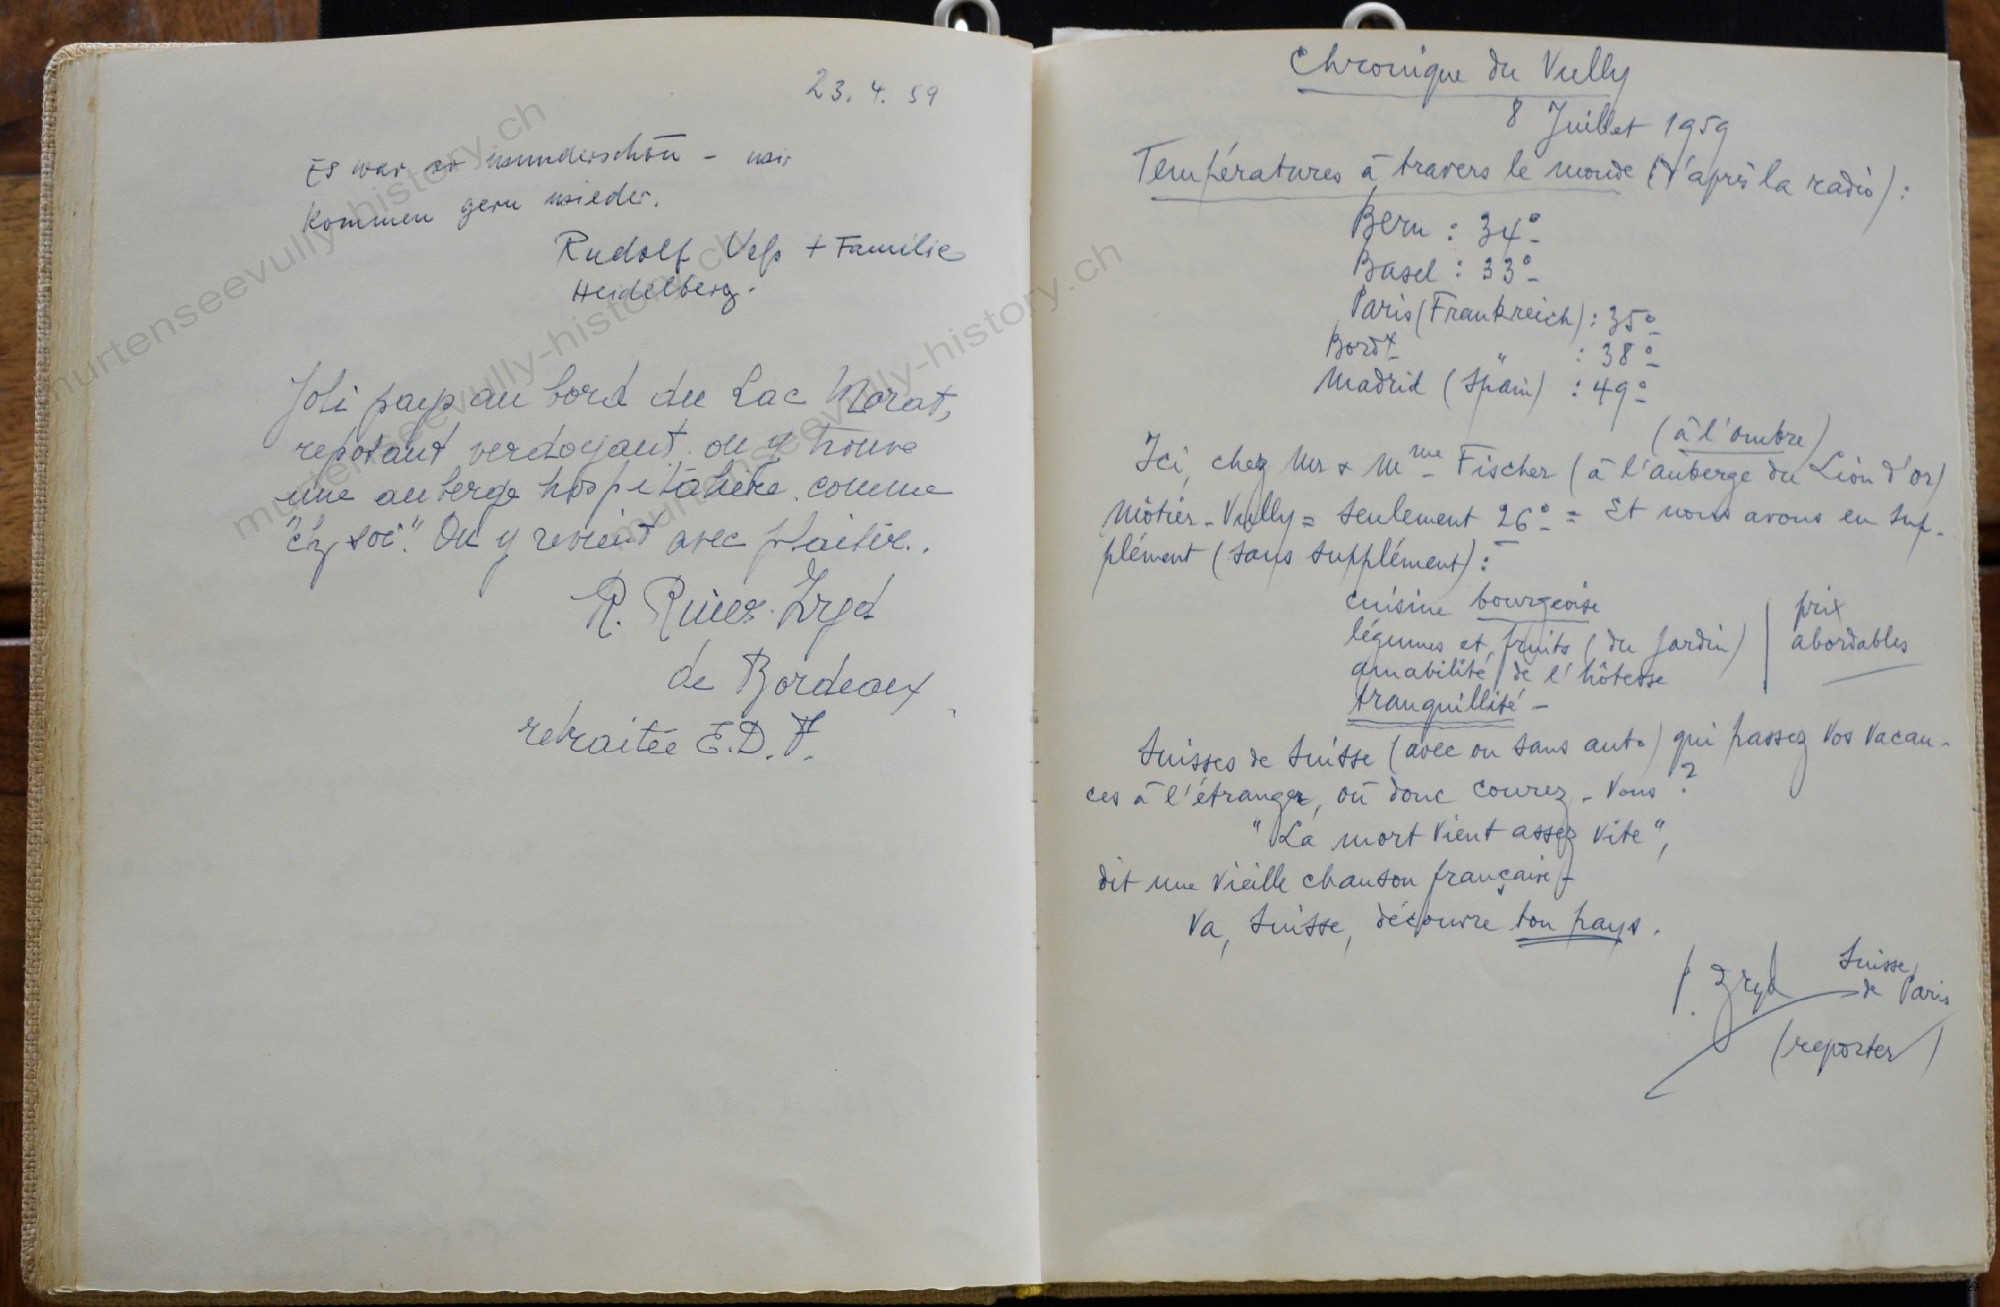 23. 4. 59
Es war so wunderschön - wir
kommen gern wieder.
Rudolf + Familie
Heidelberg.
Joli pays au bord du Lac Morat,
reposant verdoyant. on y trouve
une auberge hospitalière. comme
"chz soi". On y revient avec plaisir.
R. Zryd
de Bordeaux
retraitée E.D.F.
Chronique du Vully
8 Juillet 1959
Températures à travers le monde (d'après la radio) :
Bern : 34°
Basel : 33°
Paris (Frankreich) : 35°
Bordx " : 38°
Madrid (Spain) : 49°
(à l'ombre)
Ici, chez Mr & Mme Fischer (à l'auberge du Lion d'or)
Môtier-Vully = seulement 26° = Et nous avons en sup-
plément (sans supplément) :
cuisine bourgeoise
légumes et fruits (du jardin)
amabilité de l'hôtesse
tranquillité -
prix
abordables
Suisses de Suisse (avec ou sans auto) qui passez vos vacan-
ces à l'étranger, où donc courez-vous ?
"La mort vient assez vite",
dit une vieille chanson française -
Va, Suisse, découvre ton pays.
Zryd Suisse
de Paris
(reporter)
murtenseevully-history.ch
murtenseevully-history.ch
murtenseevully-history.ch